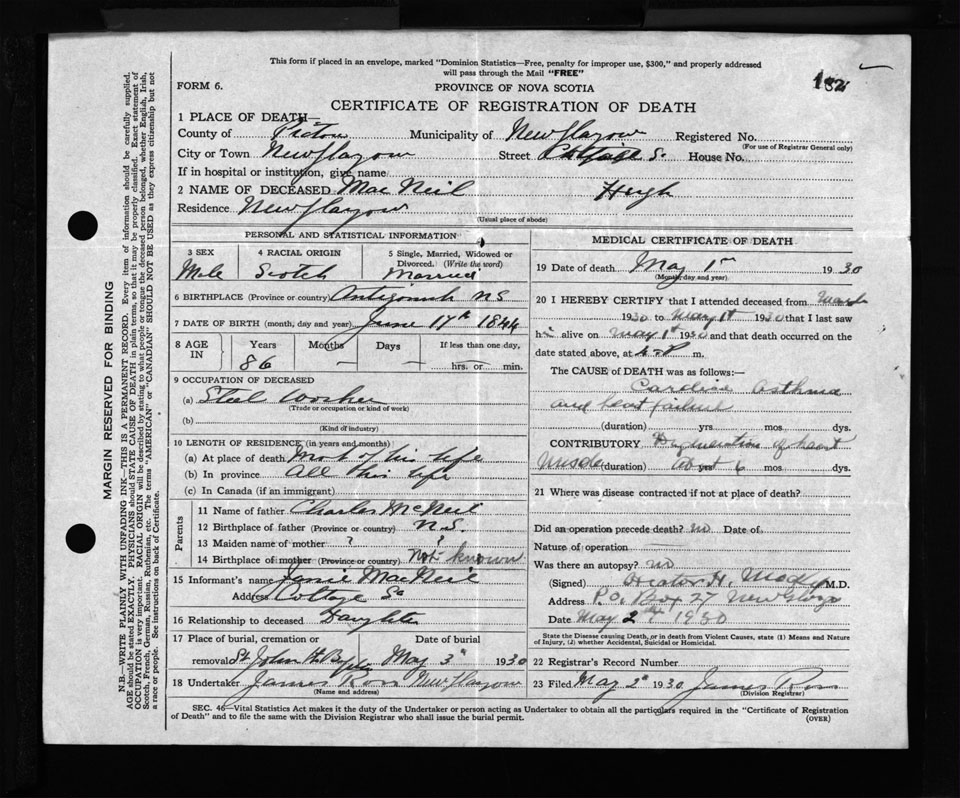 This form if placed in an envelope, marked "Dominion Statistics—Free, penalty for improper use, $300," and properly addressed
will pass through the Mail "FREE"
FORM 6.
PROVINCE OF NOVA SCOTIA
182
CERTIFICATE OF REGISTRATION OF DEATH
1 PLACE OF DEATH—
County of Pictou Municipality of New Glasgow Registered No.
(For use of Registrar General only)
City or Town New Glasgow Street House No.
If in hospital or institution, give name
2 NAME OF DECEASED Mac Neil Hugh
Residence New Glasgow
(Usual place of abode)
PERSONAL AND STATISTICAL INFORMATION
3 SEX 4 RACIAL ORIGIN 5 Single, Married, Widowed or
Divorced. (Write the word)
Male Scotch Married
6 BIRTHPLACE (Province or country) Antigonish N S
7 DATE OF BIRTH (month, day and year) June 17th 1844
8 AGE IN Years Months Days If less than one day,
86 — — hrs. or min.
9 OCCUPATION OF DECEASED
(a) Steel Worker
(Trade or occupation or kind of work)
(b)
(Kind of industry)
10 LENGTH OF RESIDENCE (in years and months)
(a) At place of death Most of his life
(b) In province All this life
(c) In Canada (if an immigrant)
Parents
11 Name of father Charles McNeil
12 Birthplace of father (Province or country) N.S.
13 Maiden name of mother ? ?
14 Birthplace of mother (Province or country) Not known
15 Informant's name Janie MacNeil
Address Cottage St
16 Relationship to deceased Daughter
17 Place of burial, cremation or Date of burial
removal St. John the May 3rd 1930
18 Undertaker James Ross New Glasgow
(Name and address)
MEDICAL CERTIFICATE OF DEATH
19 Date of death May 1st 1930
(Month, day and year)
20 I HEREBY CERTIFY that I attended deceased from March
1930 to May 1st 1930 that I last saw
him alive on May 1st 1930 and that death occurred on the
date stated above, at P m.
The CAUSE of DEATH was as follows:—
Cardiac Asthma
and heart failure
(duration) yrs mos dys.
CONTRIBUTORY Degeneration of heart
muscle (duration) About 6 mos dys.
21 Where was disease contracted if not at place of death?
Did an operation precede death? no Date of.
Nature of operation
Was there an autopsy? no
(Signed) H. M.D.
Address P.O. Box 27 New Glasgow
Date May 2nd 1930
State the Disease causing Death, or in death from Violent Causes, state (1) Means and Nature
of Injury, (2) whether Accidental, Suicidal or Homicidal.
22 Registrar's Record Number
23 Filed May 2nd 1930 James Ross
(Division Registrar)
SEC. 46—Vital Statistics Act makes it the duty of the Undertaker or person acting as Undertaker to obtain all the particulars required in the "Certificate of Registration
of Death" and to file the same with the Division Registrar who shall issue the burial permit.
(OVER)
MARGIN RESERVED FOR BINDING
N.B.—WRITE PLAINLY WITH UNFADING INK—THIS IS A PERMANENT RECORD. Every item of information should be carefully supplied.
AGE should be stated EXACTLY. PHYSICIANS should STATE CAUSE OF DEATH in plain terms, so that it may be properly classified. Exact statement of
OCCUPATION is very important. RACIAL ORIGIN will be described by stating to what people or tongue the deceased person belonged, whether English, Irish,
Scotch, French, German, Russian, Ruthenian, etc. The terms "AMERICAN" or "CANADIAN" SHOULD NOT BE USED as they express citizenship but not
a race or people. See instructions on back of Certificate.